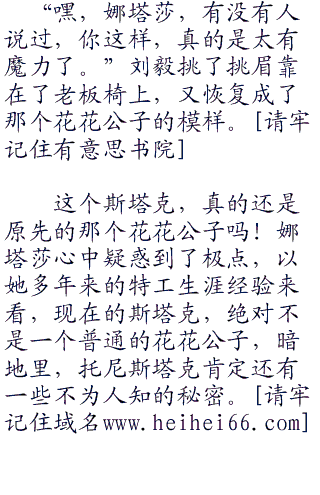 “嘿，娜塔莎，有没有人
说过，你这样，真的是太有
魔力了。”刘毅挑了挑眉靠
在了老板椅上，又恢复成了
那个花花公子的模样。[请牢
记住有意思书院]
这个斯塔克，真的还是
原先的那个花花公子吗！娜
塔莎心中疑惑到了极点，以
她多年来的特工生涯经验来
看，现在的斯塔克，绝对不
是一个普通的花花公子，暗
地里，托尼斯塔克肯定还有
一些不为人知的秘密。[请牢
记住域名www.heihei66.com]